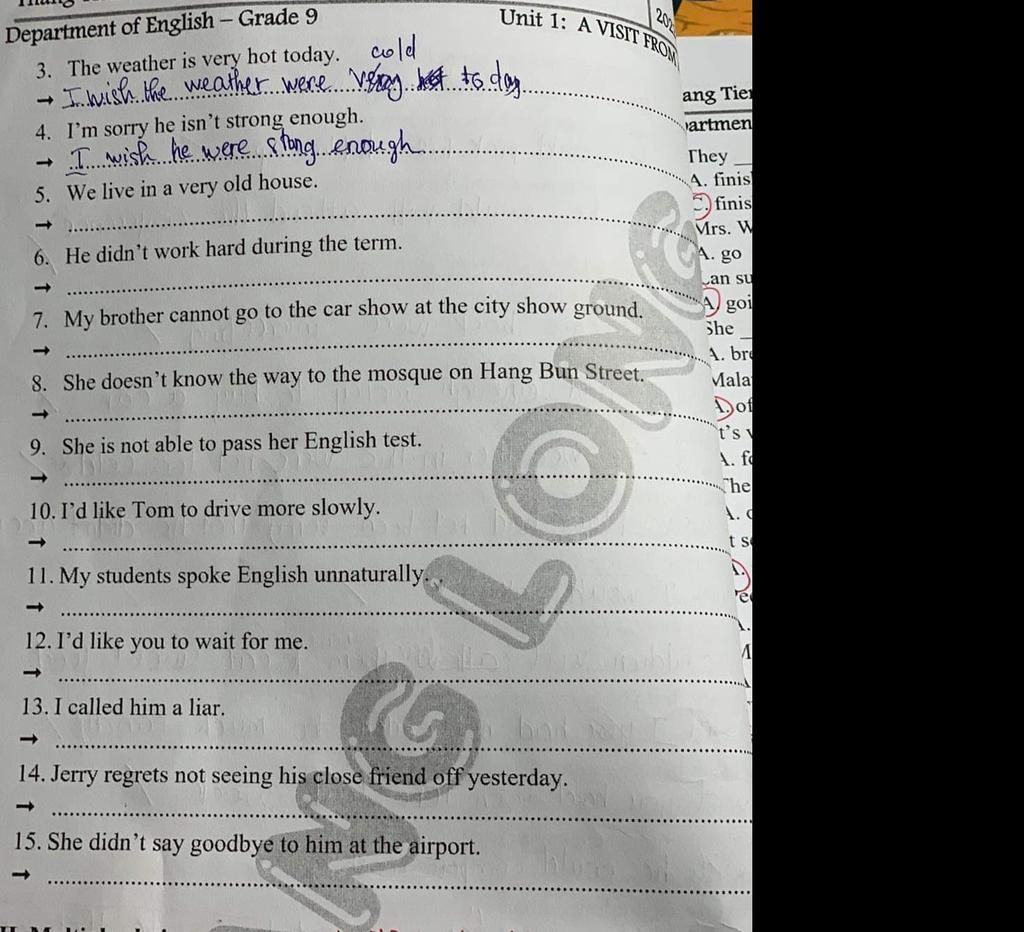 Department of English – Grade 9
Unit 1: A VISIT FROM
3. The weather is very hot today. cold
→ I wish the weather were very to day
4. I'm sorry he isn't strong enough.
→ I wish he were stong enough
5. We live in a very old house.
→
6. He didn't work hard during the term.
→
7. My brother cannot go to the car show at the city show ground.
→
8. She doesn't know the way to the mosque on Hang Bun Street.
→
9. She is not able to pass her English test.
→
10. I'd like Tom to drive more slowly.
→
11. My students spoke English unnaturally.
→
12. I'd like you to wait for me.
→
13. I called him a liar.
→
14. Jerry regrets not seeing his close friend off yesterday.
→
15. She didn't say goodbye to him at the airport.
→
NG LONG
ang Tier
artmen
They
A. finis
C. finis
Mrs. W
A. go
an su
A. goi
She
A. bre
Mala
A. of
t's
A. fo
The
A.